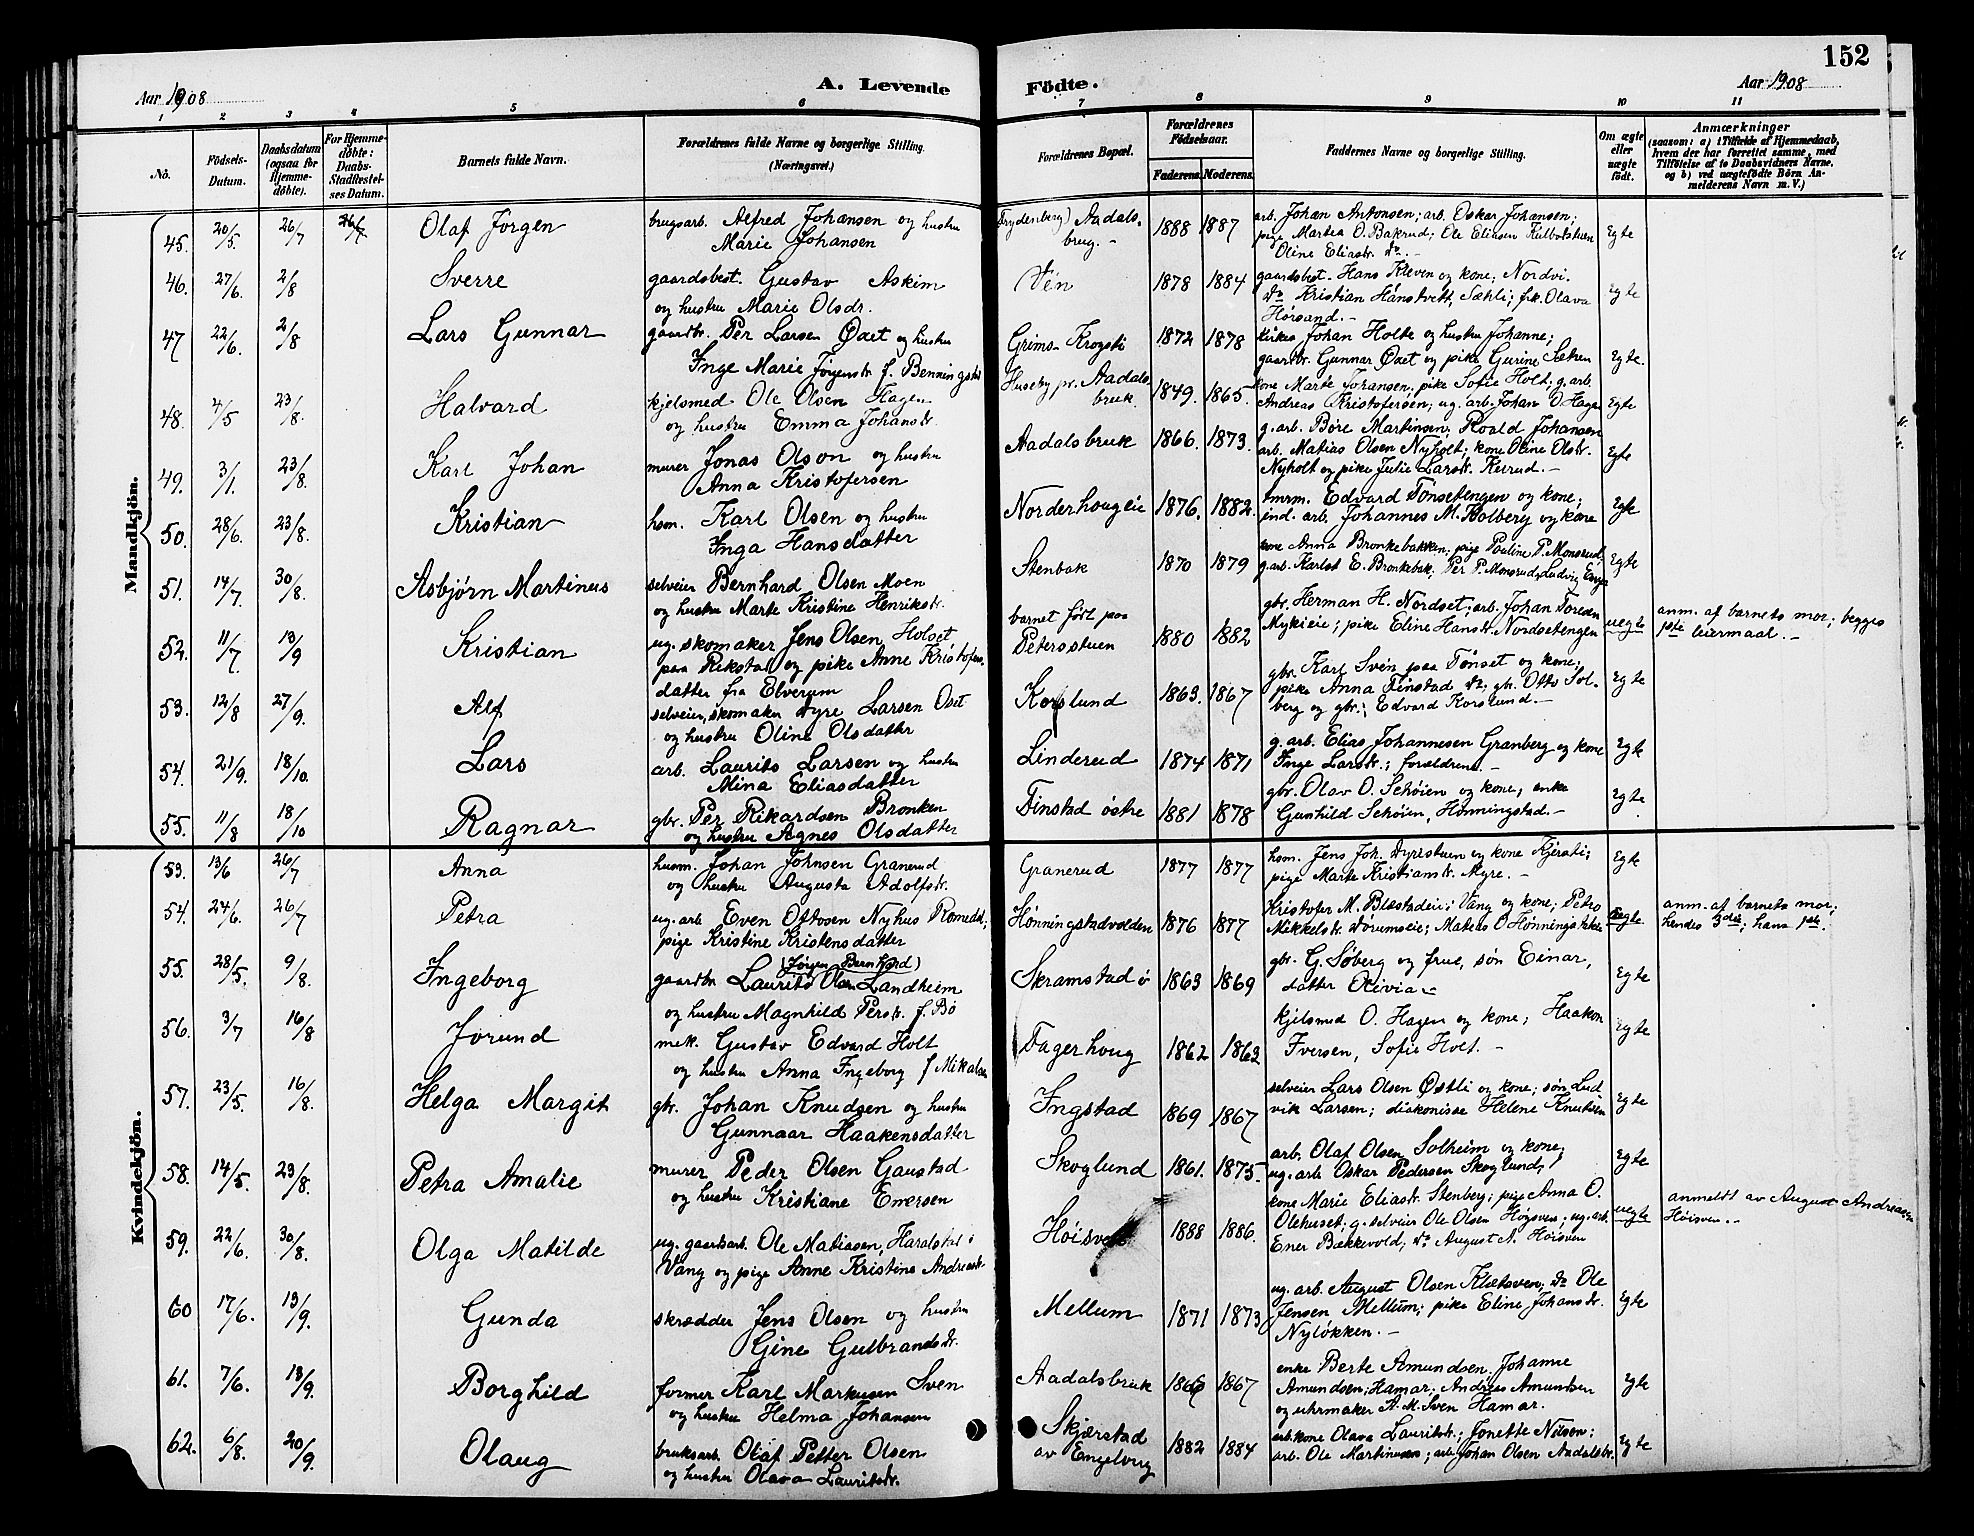 152
Aar 1908
A. Levende Födte.
Aar 1908
1 2 3 4 5 6 7 8 9 10 11
No.
Födsels-Datum.
Daabsdatum (ogsaa for Hjemme-döbte).
For Hjemme-döbte: Daabs Stadfæstel-ses Datum.
Barnets fulde Navn.
Forældrenes fulde Navne og borgerlige Stilling.
(Næringsvei.)
Forældrenes Bopæl.
Forældrenes Födselsaar.
Faderens. Moderens.
Faddernes Navne og borgerlige Stilling.
Om ægte eller uægte født.
Anmærkninger
(saasom: a) i Tilfælde af Hjemmedaab,
hvem der har forrettet samme, med
Tilföielse af to Daabsvidners Navne,
og b) ved uægtefödte Börn An-
melderens Navn m. V.)
Mandkjön.
45. 20/5 26/7 26/7 Olaf Jørgen brugsarb. Alfred Johansen og hustru
Marie Johansen
Frydenberg) Aadals-
brug.- 1888 1887 arb. Johan Antonsen; arb. Oskar Johansen;
pige Martea O. Bakrud; Ole Eliasen
Oline Eliastr. do.- Egte
46. 27/6. 2/8 Sverre gaardsbest. Gustav Askim
og hustru Marie Olsdr.
Vén 1878 1884 gaardsbest. Hans Kleven og kone; Nordvi.
do Kristian Hanstvett, Sæhli; frk. Olava
Hørsand.- Egte
47 22/6. 2/8 Lars Gunnar gaardbr. Per Larsen Oxet og hustru
Inge Marie Jørgenstr. f. Benningstad
Grims- Krogsti 1872 1878 kirkes. Johan Holte og hustru Johanne;
gaardbr. Gunnar Oxet og pike Gurine Sæten Egte.
48. 4/5 23/8. Halvard kjelsmed Ole Olsen Hagen
og hustru Emma Johanstr.
Huseby pr. Aadals
bruk. 1849. 1865. kone Marte Johansen; pike Sofie Holt; g. arb.
Andreas Kristofersen; ug. arb. Johan O. Hagen Egte
49. 3/1. 23/8. Karl Johan murer Jonas Olson og hustru
Anna Kristofersen
Aadalsbruk 1866. 1873. g. arb. Bore Martinsen; Roald Johansen
arb. Matias Olsen Nyholt; kone Oline Olstr.
Nyholt og pike Julie Larstr. Keirud.- Egte
50. 28/6. 23/8. Kristian hsm. Karl Olsen og hustru
Inga Hansdatter
Norderhougeie 1876. 1882. tmrm. Edvard Tonsetengen og kone;
ind. arb. Johannes M. Kolberg og kone Egte
51. 14/7. 30/8. Asbjørn Martinus selveier Bernhard Olsen Moen
og hustru Marte Kristine Henrikstr.
Stenbæk 1870 1879 kone Anna Bronkebakken; pige Pauline P. Monsrud;
g. arb. Karlot E. Bronkebek; Per P. Monsrud; Ludvig Enger Egte
52. 11/7 13/9 Kristian ug. skomaker Jens Olsen, Holset
paa Rikstad og pike Anne Kristofers-
datter fra Elverum
barnet født paa
Petersstuen 1880 1882 gbr. Herman H. Nordset; arb. Johan Toresen
Mykieie; pike Eline Hanstr. Nordsetengen uegte anm. af barnets mor; begges
1ste leiermaal.-
53. 12/8 27/9. Alf selveier, skomaker Syre Larsen Oset
og hustru Oline Olsdatter
Korslund 1863. 1867 gbr. Karl Svén paa Tønset og kone;
pike Anna Finstad do; gbr. Otto Sol-
berg og gbr.; Edvard Korslund.- Egte
54. 21/9. 18/10. Lars arb. Laurits Larsen og hustru
Mina Eliasdatter
Linderud 1874 1871 g. arb. Elias Johannesen Granberg og kone
Inge Larstr.; forældrene.- Egte
55. 11/8 18/10 Ragnar gbr. Per Rikardsen Bronken
og hustru Agnes Olsdatter
Finstad østre 1881 1878 gbr. Olav O. Schøien og kone; enke
Gunhild Schøien, Hønningstad.- Egte.
Kvindekjön.
53. 13/6 26/7 Anna husm. Johan Johnsen Granerud
og hustru Augusta Adolfstr.
Granerud 1877 1877 hsm. Jens Joh. Dyrestuen og kone Kjersti;
pige Marte Kristianstr. Myre.- Egte
54. 24/6. 26/7 Petra ug. arb Even Ottosen Nyhus Romedal;
pige Kristine Kristensdatter
Hønningstadvolden 1876 1877 Kristofer M. Blæstadeie i Vang og kone; Petro
Mikkelstr. Dørumseie; Mateus O Hønningstadeie uegte. anm. af barnets mor;
hendes 3die; hans 1ste.
55. 28/5. 9/8. Ingeborg (Jørgen Bernhard)
gaardbr Laurits Olsen Landheim
og hustru Magnhild Perstr. f. Bø
Skramstad ø 1863 1869 gbr. G. Søberg og frue, søn Einar,
datter Olivia.- Egte
56. 3/7 16/8 Jorund mek. Gustav Edvard Holt
og hustru Anna Ingeborg f Mikalsen
Fagerhoug 1862 1862 kjelsmed O. Hagen og kone; Haakon
Iversen, Sofie Holt.- Egte
57. 23/5. 16/8. Helga Margit gbr. Johan Knudsen og hustru
Gunnaar Haakensdatter
Ingstad 1869 1867 selveier Lars Olsen Østli og kone; søn Lud-
vik Larsen; diakonisse Helene Knutsen Egte
58. 14/5. 23/8. Petra Amalie murer Peder Olsen Gaustad
og hustru Kristiane Enersen
Skoglund 1861. 1875. arb. Olaf Olsen Solheim og kone;
ug. arb Oskar Pedersen Skoglund; Egte
59. 22/6. 30/8. Olga Matilde ug. gaardsarb. Ole Matiasen, Haralstad i
Vang og pige Anne Kristine Andreastr.
Høisveen 1888 1886. kone Marie Eliastr. Stenberg; pige Anna O.
Olehuset; g. selveier Ole Olsen Høgsveen; ug. arb.
Ener Bækkevold; do August A. Høisveen uegte anmeldt av August Andreasen
Høisveen.-
60 17/6. 13/9. Gunda skrædder Jens Olsen og hustru
Gine Gulbrandsdr.
Mellum 1871 1873 ug. arb. August Olsen Klætsveen; do Ole
Jensen Mellum; pike Eline Johansdr.
Nyløkken.- Egte
61. 7/6. 13/9. Borghild former Karl Markusen Sven
og hustru Helma Johansen
Aadalsbruk 1867 enke Berte Amundsen, Johanne
Amundsen; Hamar; Andreas Amundsen
og uhrmaker A. M. Sven Hamar. Egte
62. 6/8. 20/9. Olaug bruksarb. Olaf Petter Olsen
og hustru Olava Lauritstr.
Skjærstad
av Engelberg 1882 1884 arbkone Olava Lauritstr.; Jonette Nilsen;
arb. Ole Martinusen; arb. Johan Olsen Aadalsbr. Egte